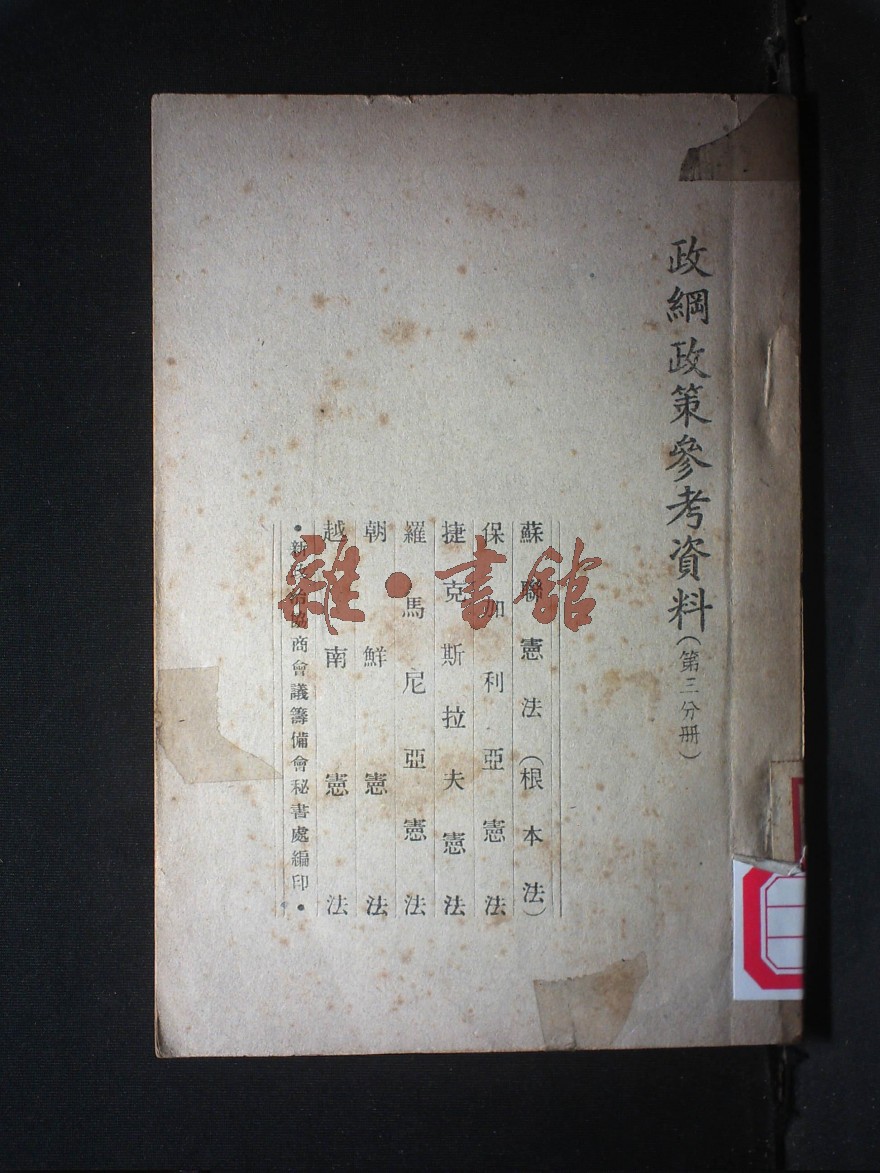 政綱政策參考資料(第三分册)
蘇聯憲法(根本法)
保加利亞憲法
捷克斯拉夫憲法
羅馬尼亞憲法
朝鮮憲法
越南憲法
•新政治協商會議籌備會秘書處編印•
雜·書館